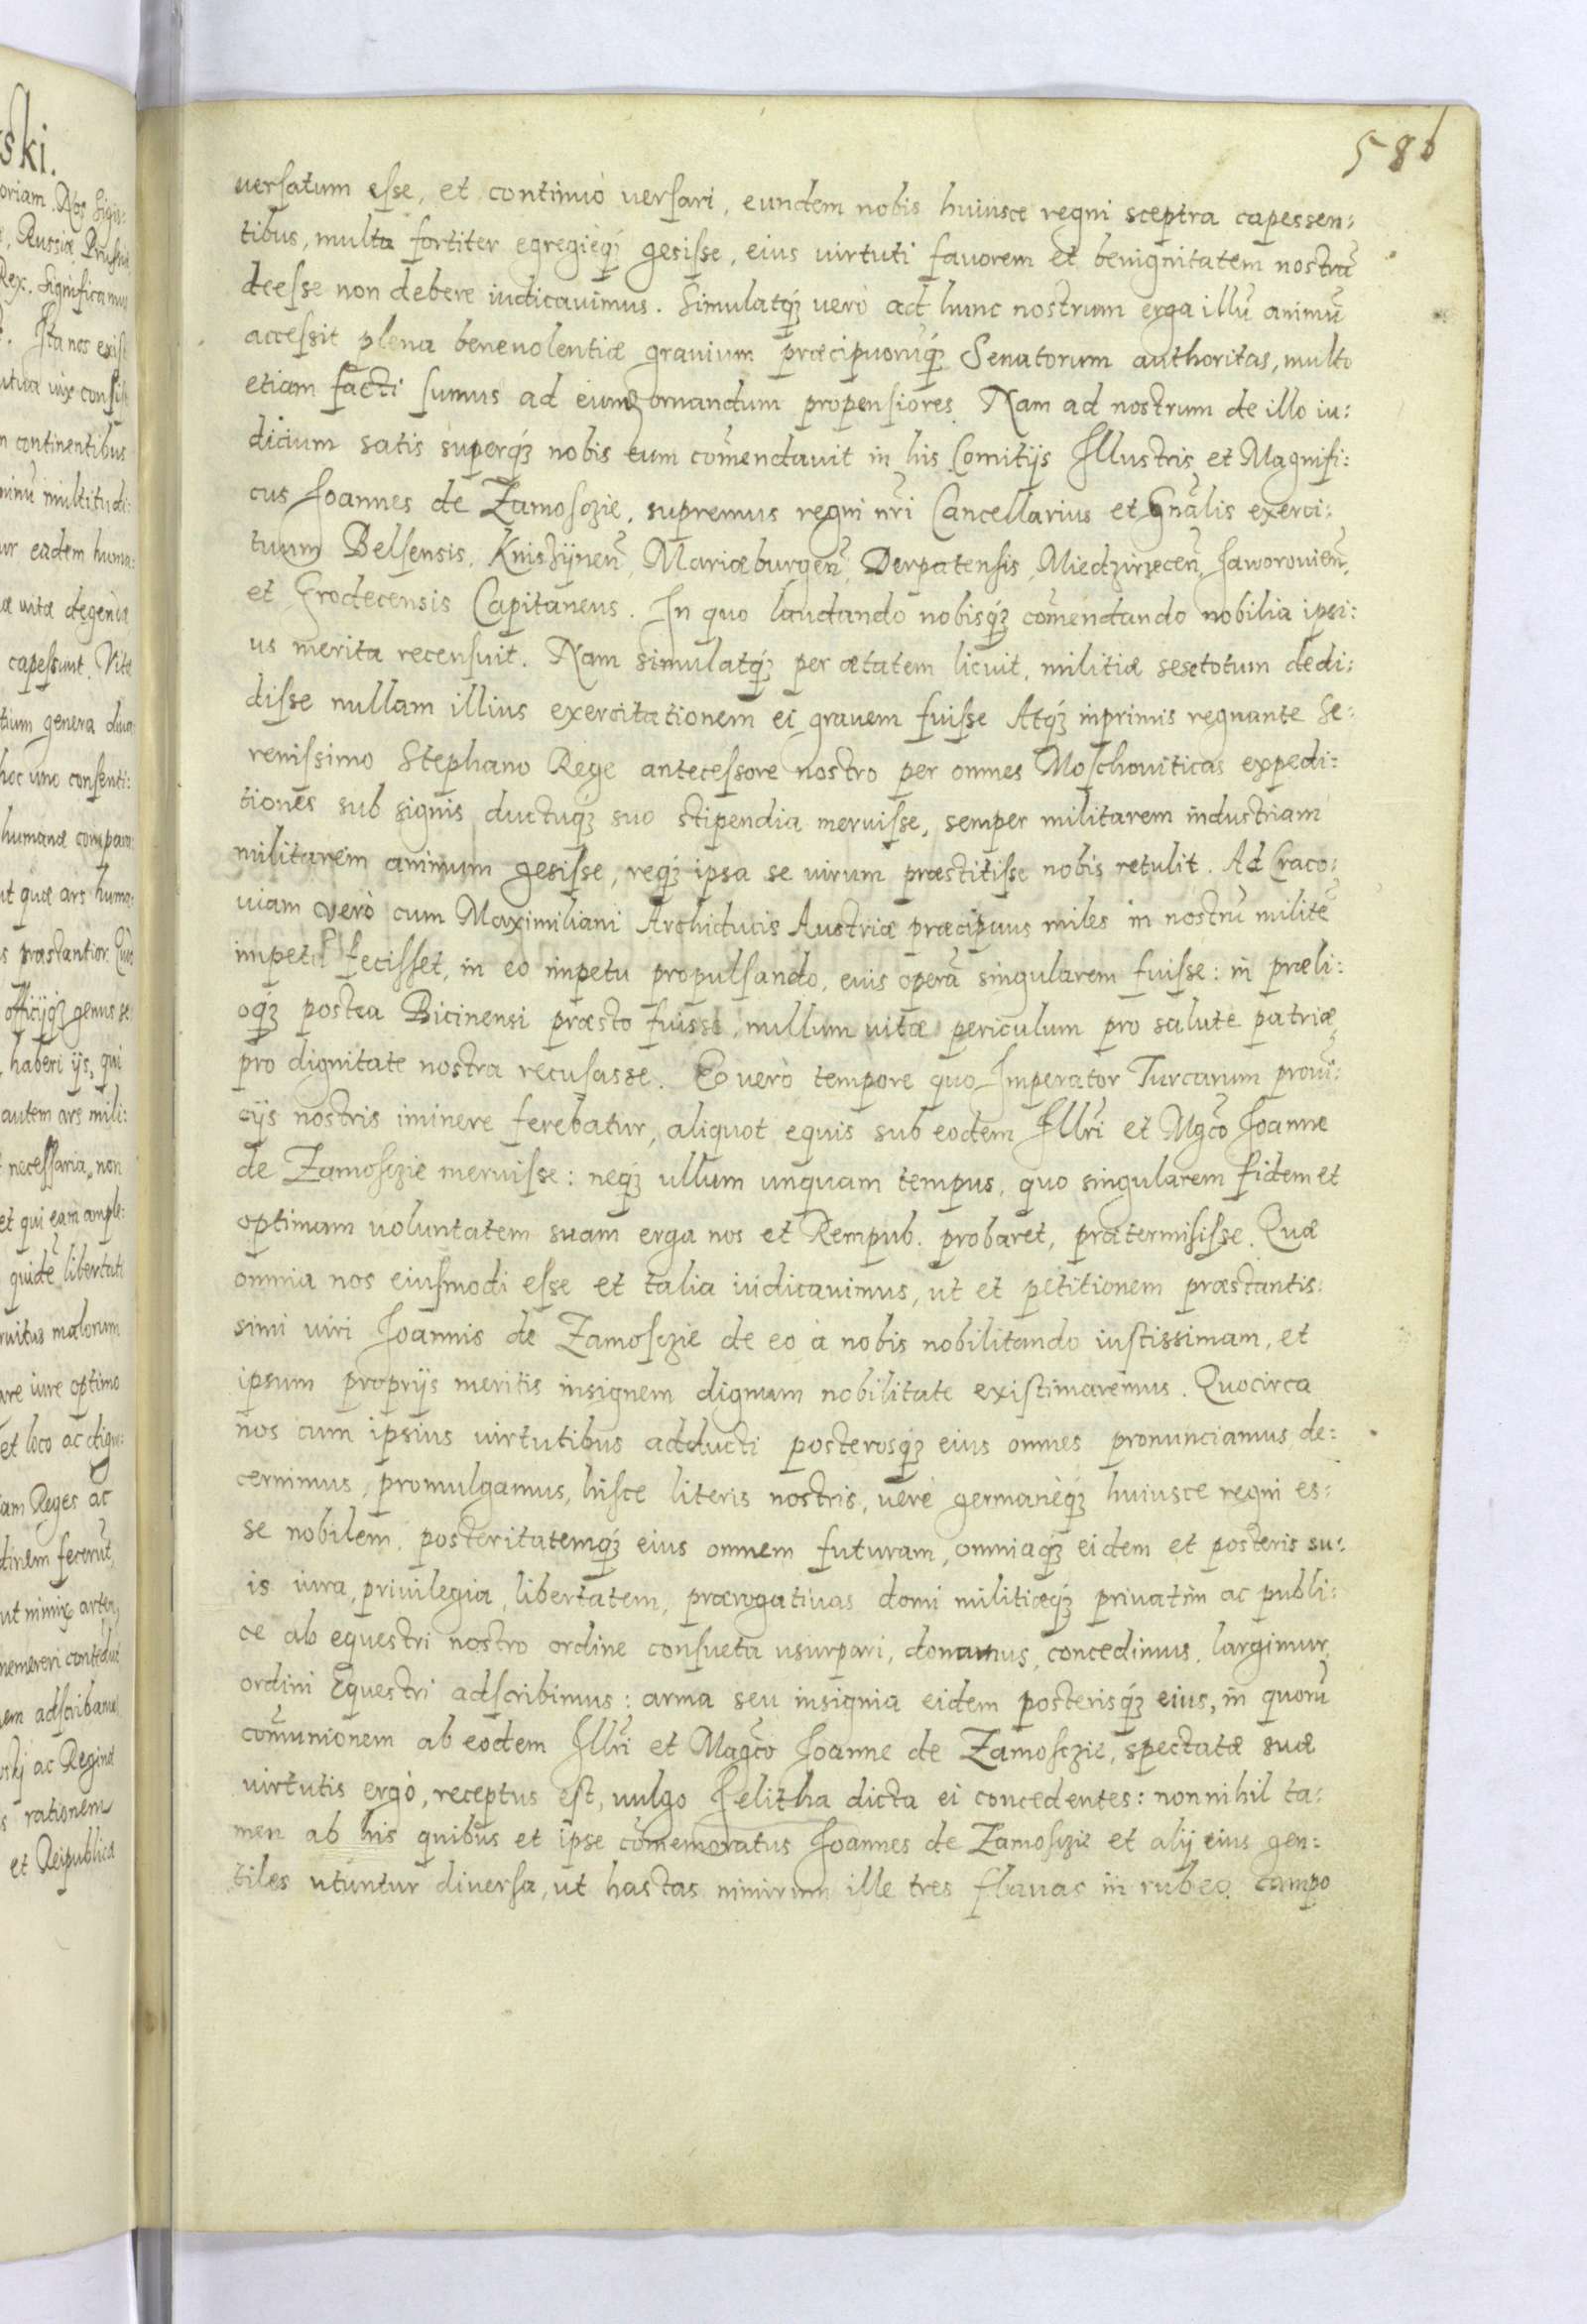 586
uersatum esse, et continuò uersari, eundem nobis huiusce regni sceptra capessen:
tibus, multa fortiter egregieq́3 gesisse, eius uirtuti fauorem et benignitatem nostrã
deesse non debere iudicauimus. Simulatq́3 uerò ad hunc nostrum erga illũ animũ
accessit plena beneuolentiæ grauium præcipuorũq́3 Senatorum authoritas, multo
etiam facti sumus ad eum ornandum propensiores. Nam ad nostrum de illo iu:
dicium satis superq́3 nobis eum com̃endauit in his Comitijs Illustris et Magnifi:
cus Joannes de Zamosczie, supremus regni nr̃i Cancellarius et Gnãlis exerci:
tuum Belsensis, Knisziynen̄, Mariæburgen̄, Derpatensis, Miedzirzecen̄, Jaworouien̄,
et Grodecensis Capitaneus. In quo laudando nobisq́3 com̃endando nobilia ipsi:
us merita recensuit. Nam simulatq́3 per ætatem licuit, militiæ sesetotum dedi:
disse nullam illius exercitationem ei grauem fuisse Atq́3 inprimis regnante Se:
renissimo Stephano Rege antecessore nostro per omnes Moschouiticas expedi:
tiones sub signis ductuq́3 suo stipendia meruisse, semper militarem industriam
militarem animum gesisse, req́3 ipsa se uirum præstitisse nobis retulit. Ad Craco:
uiam verò cum Maximiliani Archiducis Austriæ præcipuus miles in nostrũ militẽ
impetũ fecisset, in eo impetu propulsando, euis operã singularem fuisse: in præli:
oq́3 postea Bicinensi præsto fuisse, nullum uitæ periculum pro salute patriæ,
pro dignitate nostra recusasse. Eo uerò tempore quo Imperator Turcarum proui:
cijs nostris iminere ferebatur, aliquot equis sub eodem Illr̃i et Mgc̃o Joanne
de Zamosczie meruisse: neq́3 ullum unquam tempus, quo singularem fidem et
optimam uoluntatem suam erga nos et Rempub. probaret, prætermisisse. Quæ
omnia nos eiusmodi esse et talia iudicauimus, ut et petitionem præstantis:
simi uiri Joannis de Zamosczie de eo à nobis nobilitando iustissimam, et
ipsum proprijs meritis insignem dignum nobilitate existimaremus. Quocirca
nos cum ipsius uirtutibus adducti posterosq́3 eius omnes pronunciamus, de:
cernimus, promulgamus, hisce literis nostris, uerè germanèq́3 huiusce regni es:
se nobilem, posteritatemq́3 eius omnem futuram, omniaq́3 eidem et posteris su:
is iura, priuilegia, libertatem, prærogatiuas domi militiæq́3 priuatim ac publi:
ce ab equestri nostro ordine consueta usurpari, donamus, concedimus, largimur,
ordini Equestri adscribimus: arma seu insignia eidem posterisq́3 eius, in quorũ
com̃unionem ab eodem Illr̃i et Magc̃o Joanne de Zamosczie, spectatæ suæ
uirtutis ergò, receptus est, uulgo Jelitha dicta ei concedentes: nonnihil ta:
men ab his quibus et ipse com̃emoratus Joannes de Zamosczie et alij eius gen:
tiles utuntur diuersa, ut hastas nimirum ille tres flauas in rubeo campo